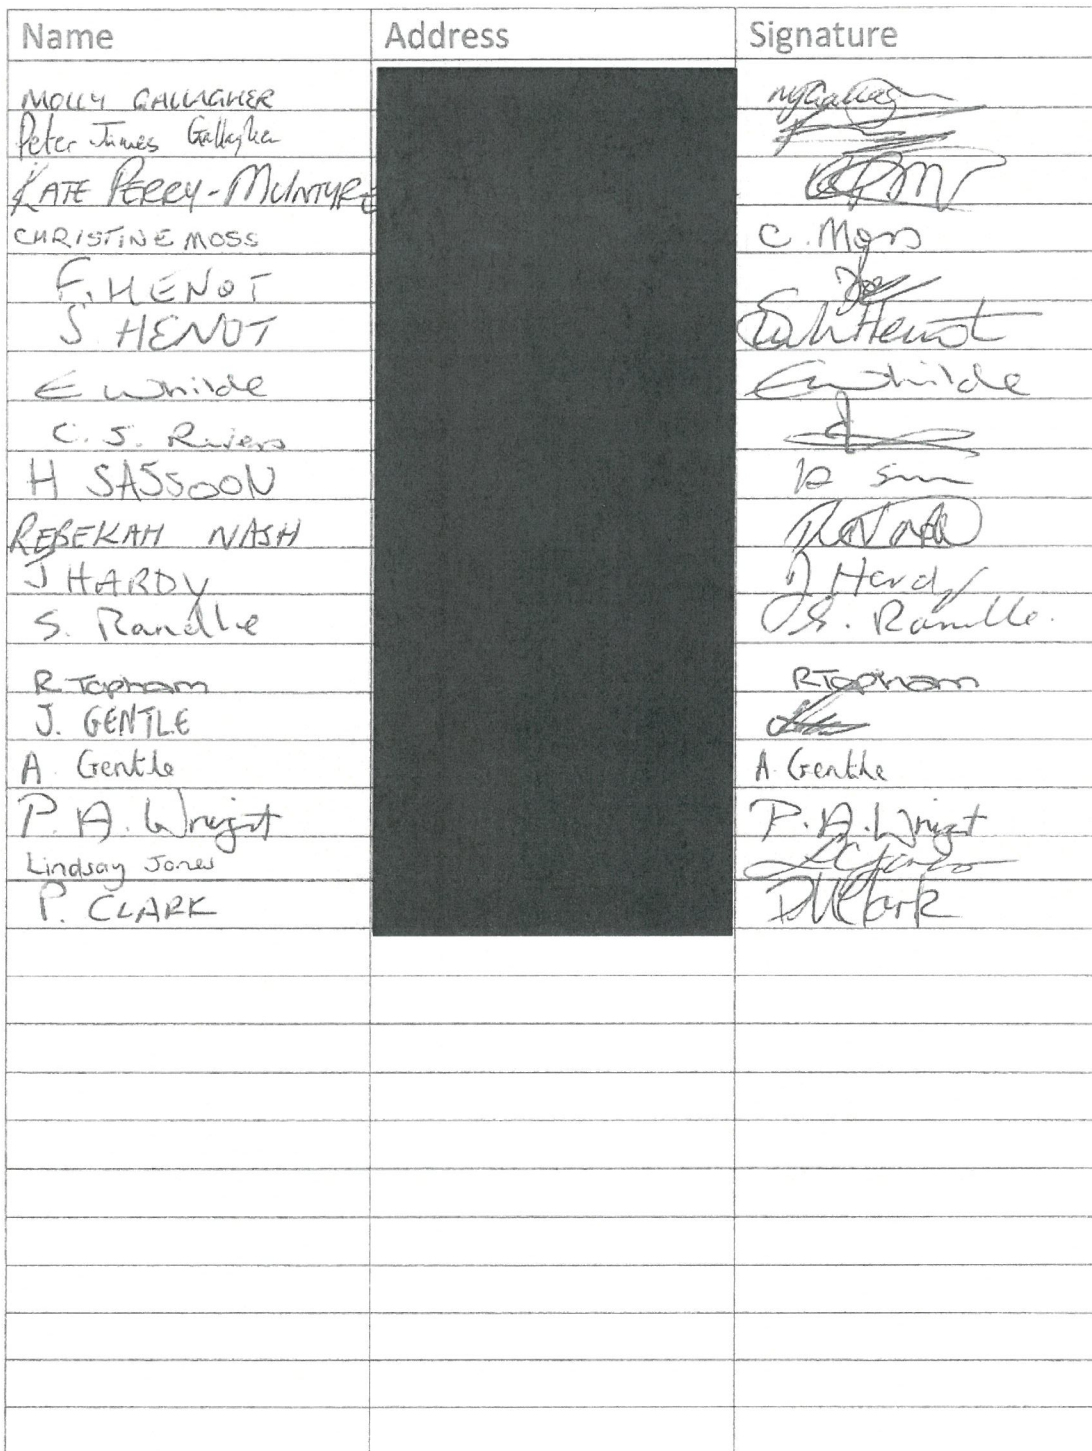 Name Address Signature
MOLLY GALLAGHER
Peter James Gallagher
KATE PERRY-MCINTYRE
CHRISTINE MOSS C. Moss
F. HENOT
S HENOT
E Whilde E Whilde
C. J. Rivers
H SASSOON
REBEKAH NASH
J HARDY J Hardy
S. Randle S. Randle.
R Topham R Topham
J. GENTLE
A. Gentle A. Gentle
P. A. Wright P. A. Wright
Lindsay Jones
P. CLARK